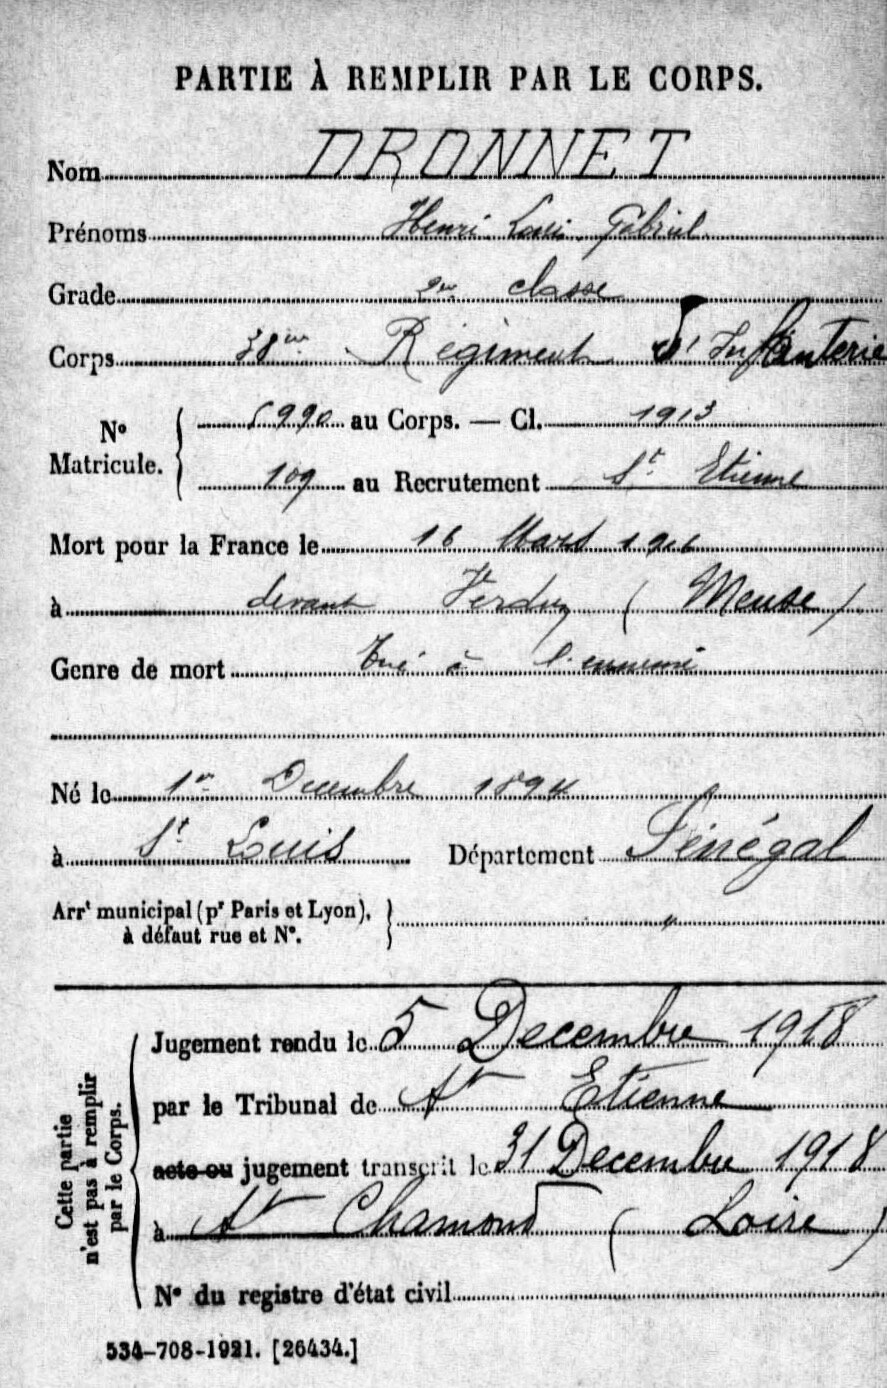 PARTIE À REMPLIR PAR LE CORPS.
Nom DRONNET
Prénoms Henri Louis Gabriel
Grade 2me classe
Corps 38me Régiment d'Infanterie
N° Matricule. 5990 au Corps. — Cl. 1913
109 au Recrutement St Etienne
Mort pour la France le 16 Mars 1916
à devant Verdun (Meuse)
Genre de mort Tué à l'ennemi
Né le 1er Decembre 1894
à St Louis Département Sénégal
Arrt municipal (pr Paris et Lyon), à défaut rue et N°. "
Cette partie n'est pas à remplir par le Corps.
Jugement rendu le 5 Decembre 1918
par le Tribunal de St Etienne
acte ou jugement transcrit le 31 Decembre 1918
à St Chamond (Loire)
N° du registre d'état civil
534-708-1921. [26434.]